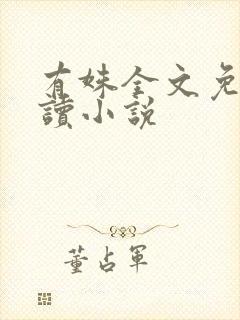 有妹全文免
讀小說
董占軍